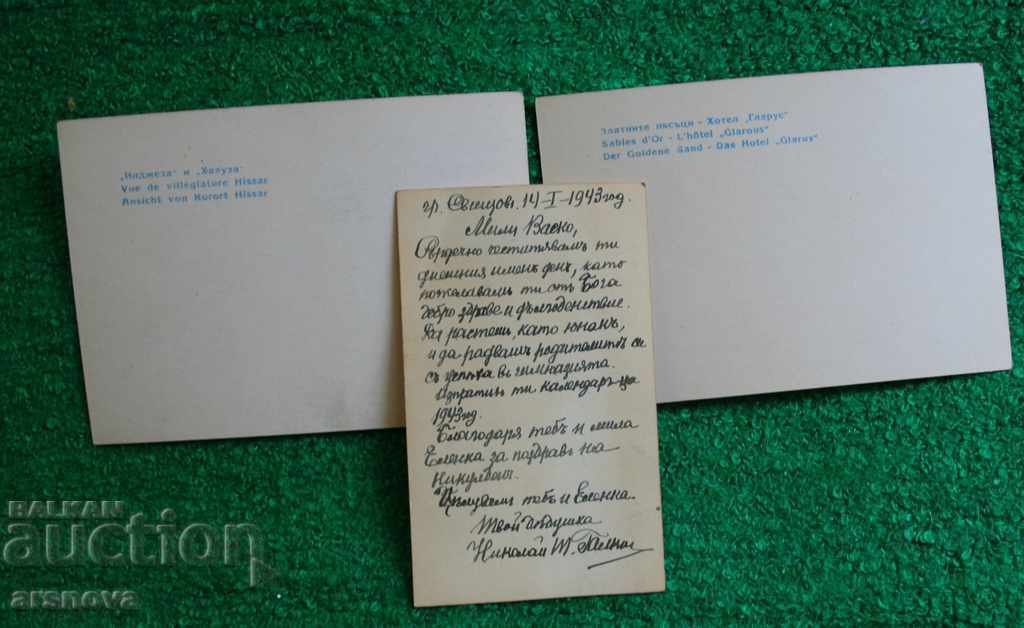 „Инджеза" и „Хауза"
Vue de villégiature Hissar
Ansicht von Kurort Hissar
Златните пясъци - Хотел „Гларус"
Sables d'Or - L'hôtel „Glarous"
Der Goldene Sand - Das Hotel „Glarus"
гр. Свищовъ 14-I-1943 год.
Мили Васко,
Сърдечно честитявамъ ти
днешния имень день, като
пожелавамъ ти отъ Бога
добро здраве и дългоденствие.
Да растешъ, като юнакъ,
и да радвашъ родителитѣ си
съ успѣха въ гимназията.
Изпратихъ ти календаръ за
1943 год.
Благодаря тебѣ и мила
Еленка за поздравъ на
Никулдень.
Цѣлувамъ тебъ и Еленка.
Твой дѣдушка
Николай Т.
BALKAN
auction
arsnova